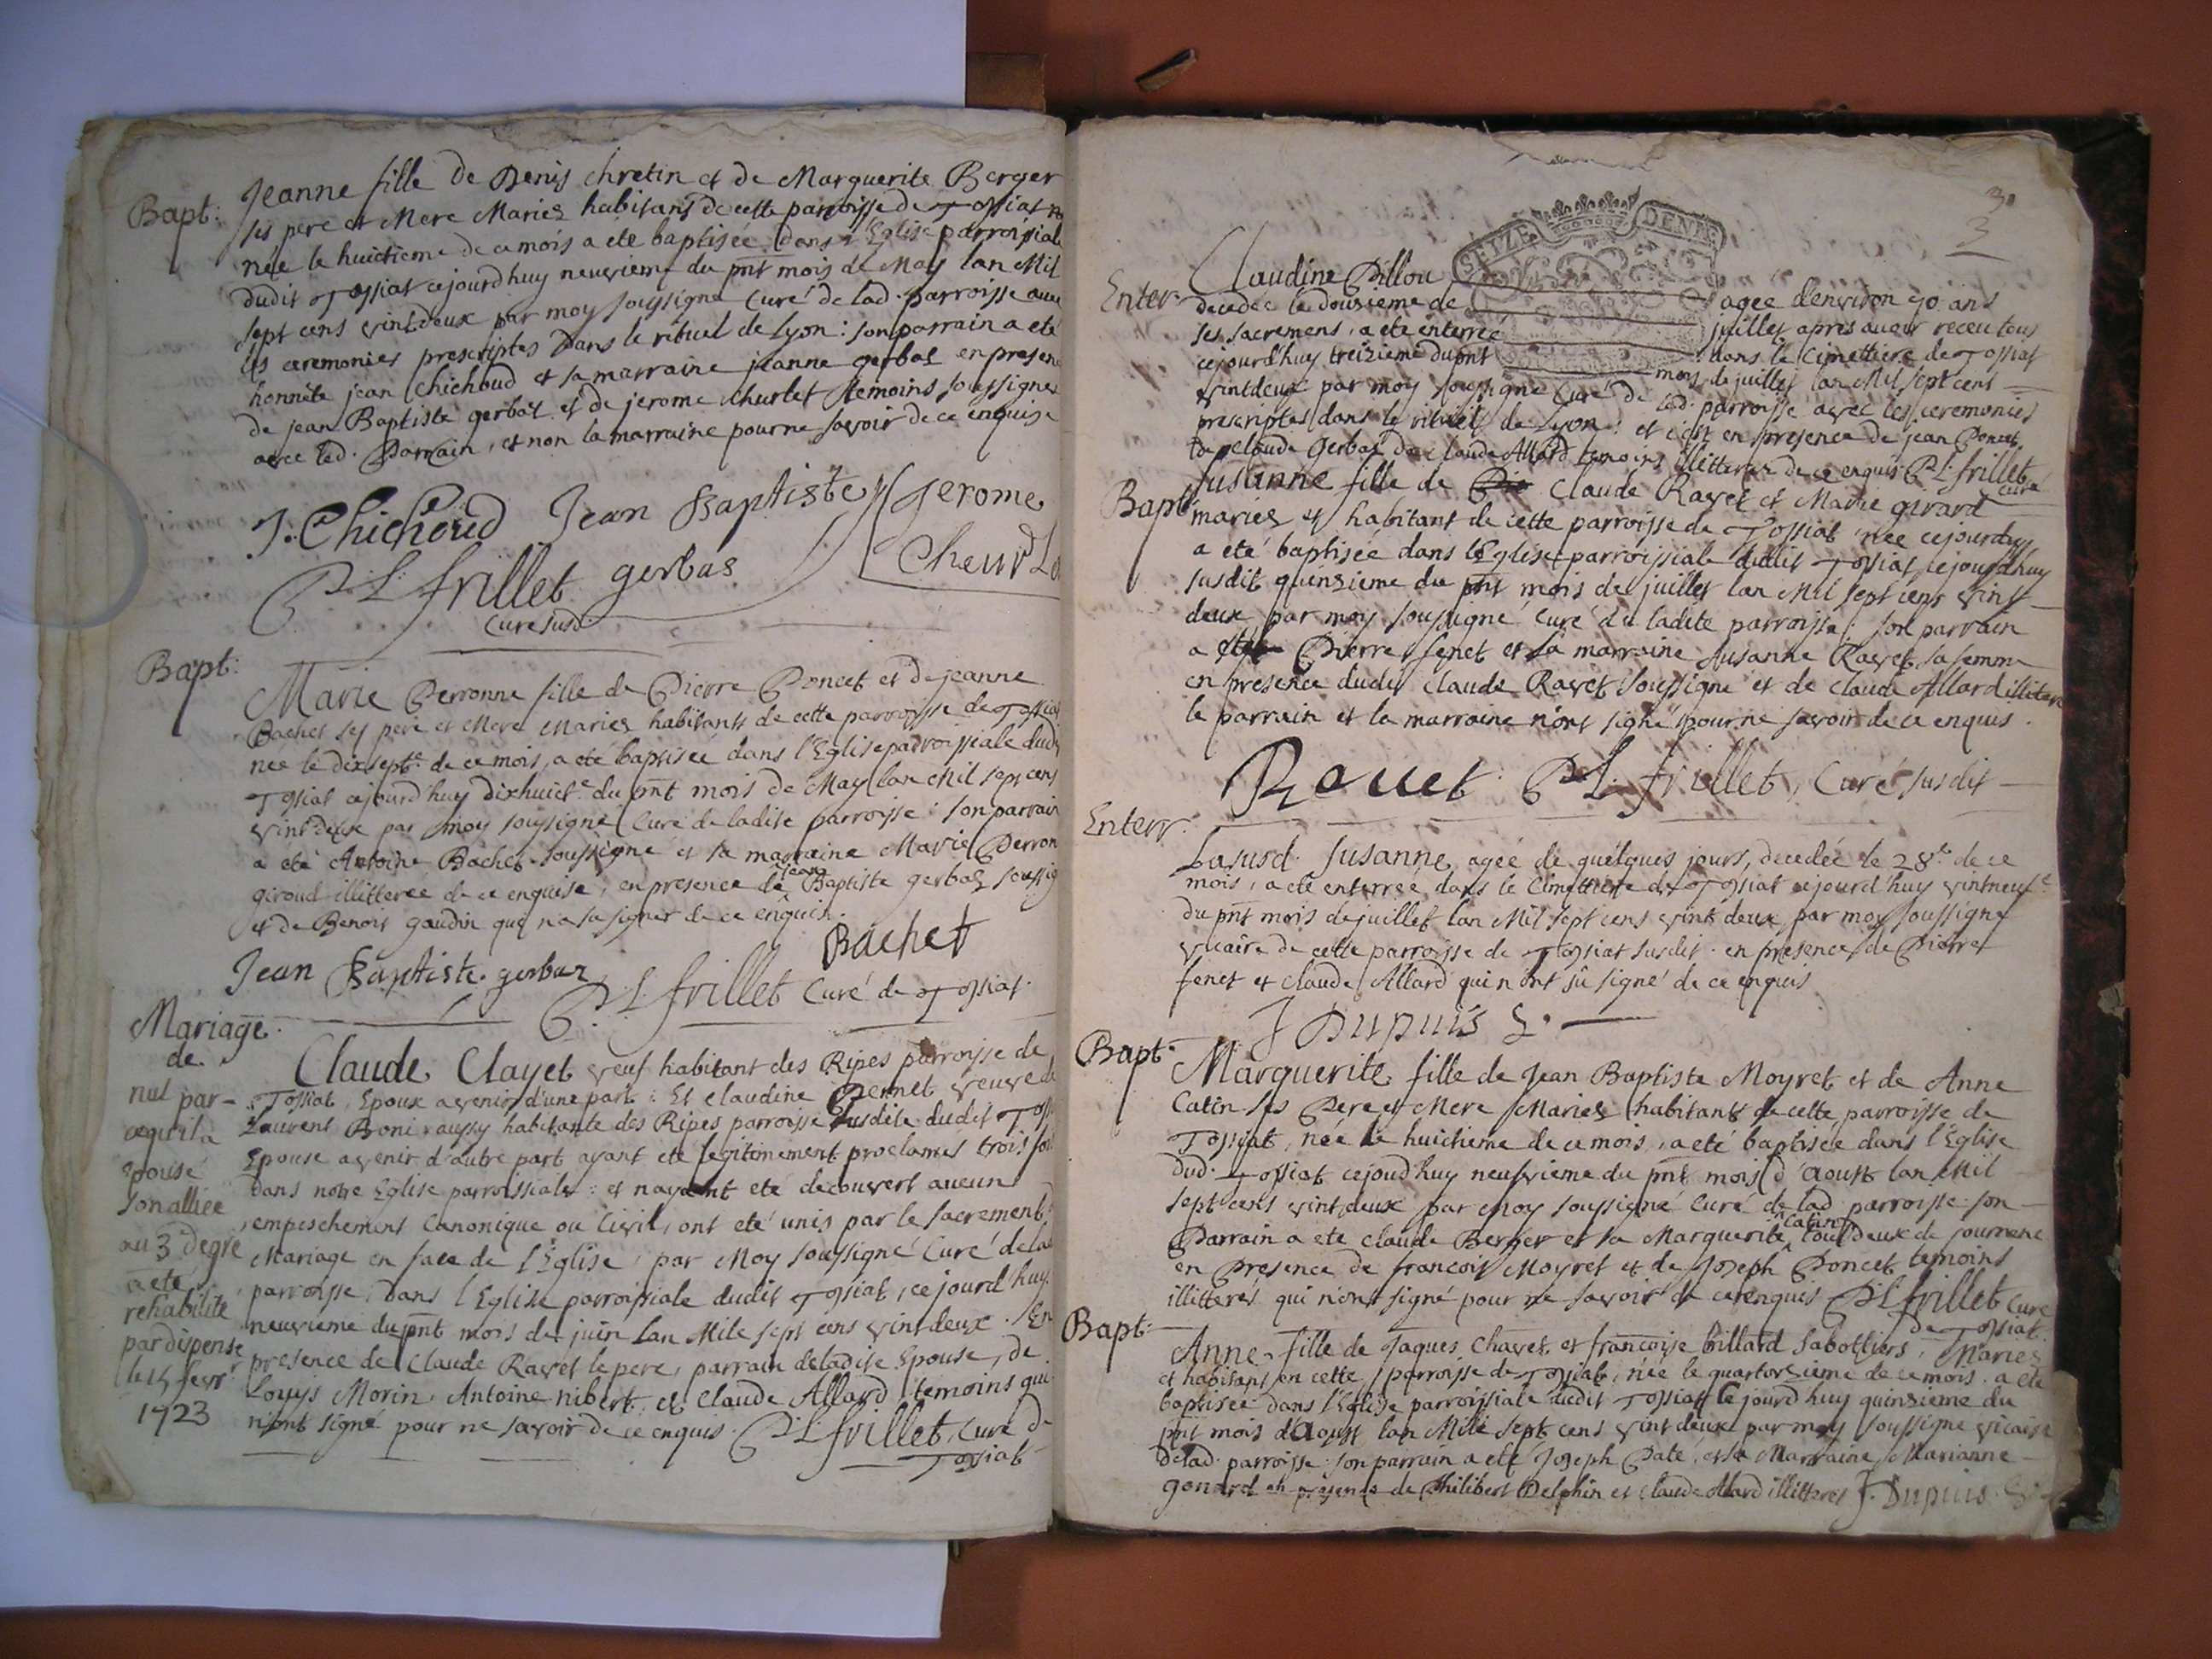 Bapt: Jeanne fille de Denis chretin et de Marguerite Berger
ses pere et Mere Mariez habitans de cette parroisse de Tossiat
née le huictieme de ce mois a eté baptisée dans l'Eglise parroissiale
dudit Tossiat cejourdhuy neuvieme du pnt mois de May lan Mil
sept cens vint deux par moy soussigné Curé de lad. parroisse avec
les ceremonies prescriptes dans le rituel de Lyon: son parrain a eté
honnête jean Chichoud et sa marraine jeanne gerbas en presence
de jean Baptiste gerbas et de jerome churlet temoins soussignes
avec led. Parrain, et non la marraine pour ne savoir de ce enquise
J. Chichoud Jean Baptiste gerbas Gerome
P L frillet
Curé susd.
Bapt: Marie Perronne fille de Pierre Poncet et de jeanne
Bachet ses pere et Mere Mariez habitants de cette parroisse de Tossiat
née le dixsept.e de ce mois, a eté baptisée dans l'Eglise parroissiale dud.
Tossiat cejourd'huy dixhuict.e du pnt mois de May lan Mil sept cens
vint deux par moy soussigné Curé de ladite parroisse: son parrain
a eté Antoine Bachet soussigné et sa marraine Marie Perron
giroud illitteree de ce enquise, en presence de jean Baptiste gerbas soussig
et de Benoit gaudin qui na su signer de ce enquis.
Bachet
Jean Baptiste gerbaz
P L frillet Curé de Tossiat.
Mariage
de
nul par-
ce quil a
epousé
son alliée
au 3.e degre
a eté
rehabilité
par dispense
le 15 fevr.
1723
Claude Clayet veuf habitant des Ripes parroisse de
Tossiat, Epoux avenir d'une part: Et Claudine Pernet veuve de
Laurent Boni aussy habitante des Ripes parroisse susdite dudit Toss
Epouse avenir d'autre part ayant eté legitimement proclames trois fois
dans notre Eglise parroissiale: et nayant eté decouvert aucun
empeschement Canonique ou Civil, ont eté unis par le sacrement
Mariage en face de l'Eglise, par Moy soussigné Curé de lad
parroisse, dans l'Eglise parroissiale dudit Tossiat, ce jourd huy
neuvieme du pnt mois de juin lan Mile sept cens vint deux. En
presence de Claude Ravet le pere, parrain de ladite Epouse, de
Louys Morin, Antoine nibert et Claude Allard temoins qui
n'ont signé pour ne savoir de ce enquis. P L frillet, Curé de
Tossiat
3
SEIZE DENIE
Enter. Claudine Pillou agee d'environ 50 ans
decedée le douzieme de juillet apres avoir receu tous
ses sacremens, a eté enterrée dans le Cimettiere de Tossiat
cejourd'huy treizieme du pnt mois de juillet lan Mil sept cens
vint deux par moy soussigné Curé de lad. parroisse avec les ceremonies
prescriptes dans le rituel de Lyon: et c'est en presence de jean Poncet,
de Claude Gerbas de Claude Allard temoins illitterez de ce enquis P L frillet
Curé
Bapt: Susanne fille de Claude Ravet et Marie girard
mariez et habitant de cette parroisse de Tossiat née cejourdhuy
a eté baptisée dans l'Eglise parroissiale dudit Tossiat, cejourdhuy
susdit quinzieme du pnt mois de juillet lan Mil sept cens vint
deux par moy soussigné Curé de ladite parroisse: son parrain
a eté Pierre fenet et sa marraine Susanne Ravet sa femme
en presence dudit Claude Ravet soussigné et de Claude Allard illiteré
le parrain et la marraine n'ont signé pour ne savoir de ce enquis.
Rauet P L frillet, Curé susdit
Enterr. La susd. Susanne, agée de quelques jours, decedée le 28.e de ce
mois, a eté enterrée dans le Cimettiere de Tossiat cejourd'huy vintneuf.e
du pnt mois de juillet lan Mil sept cens vint deux par moy soussigné
vicaire de cette parroisse de Tossiat susdit. en presence de Pierre
fenet et Claude Allard qui n'ont sû signé de ce enquis
J Dupuis
Bapt. Marguerite fille de Jean Baptiste Moyret et de Anne
Catin ses Pere et Mere Mariez habitants de cette parroisse de
Tossiat, née le huictieme de ce mois, a eté baptisée dans l'Eglise
dud. Tossiat cejoud'huy neufvieme du pnt mois d'aoust lan Mil
sept cens vint deux par moy soussigné Curé de lad. parroisse son
Parrain a ete Claude Berger et sa Marguerite Catin tout deux de journans
en Presence de francois Moyret et de Joseph Poncet temoins
illitterés qui n'ont signé pour ne savoir de ce enquis P L frillet Curé
de Tossiat.
Bapt: Anne, fille de Jaques Chavet, et francoise billard Sabottiers, Mariez
et habitans en cette parroisse de Tossiat, née le quartorzieme de ce mois, a eté
baptisée dans l'Eglise parroissiale dudit Tossiat Cejourd huy quinzieme du
pnt mois d'Aoust lan Mile sept cens vint deux par moy soussigné vicaire
de lad. parroisse: son parrain a eté Joseph Paté, et sa Marraine Marianne
gonard en presence de Philibert Delphin et Claude Allard illitterez J. Dupuis